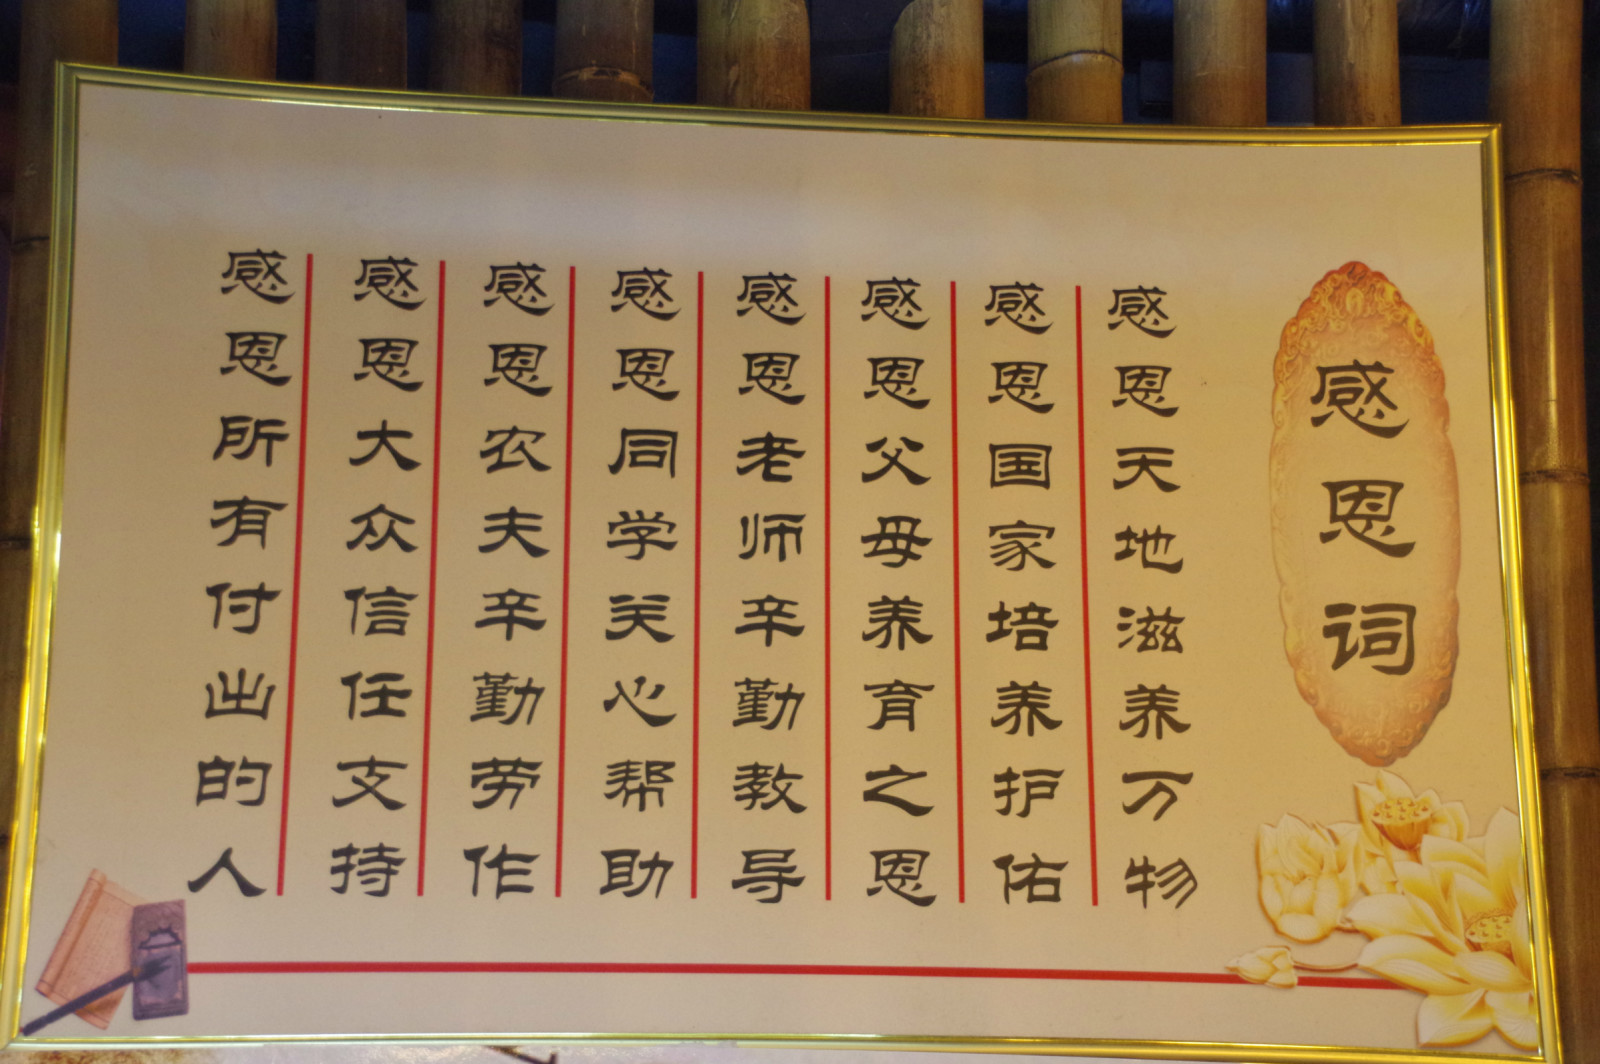 感恩词
感恩天地滋养万物
感恩国家培养护佑
感恩父母养育之恩
感恩老师辛勤教导
感恩同学关心帮助
感恩农夫辛勤劳作
感恩大众信任支持
感恩所有付出的人